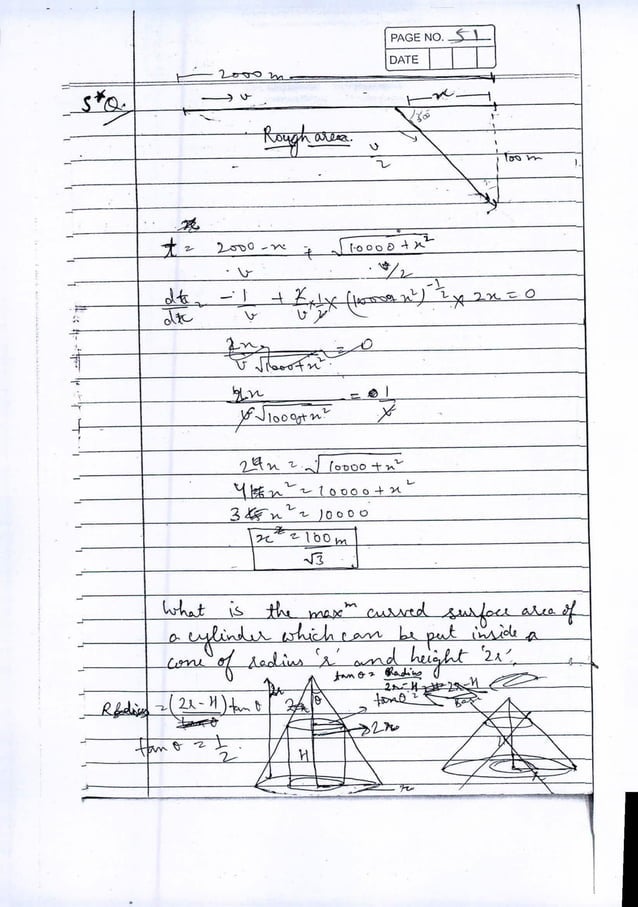 PAGE NO. 51
DATE
2000 m
5* Q.
→ v
x
Rough area
v/2
100 m
t = (2000 - x)/v + √(10000 + x²)/(v/2)
dt/dx = -1/v + 2/v × 1/2 × (10000 + x²)^(-1/2) × 2x = 0
2x/(v√(10000 + x²)) = 1/v
2x = √(10000 + x²)
4x² = 10000 + x²
3x² = 10000
x = 100 m/√3
What is the maxᵐ curved surface area of
a cylinder which can be put inside a
cone of radius 'r' and height '2r'.
tan θ = Radius/(2r - H)
Radius = (2r - H) tan θ
tan θ = 1/2
2r
θ
H
r